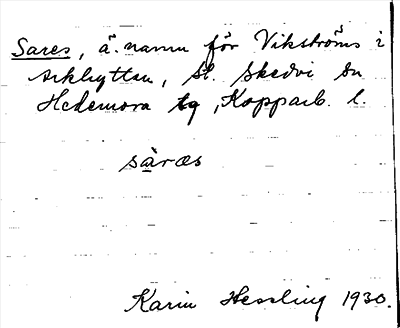 Sares, ä.namn för Vikströms i
Arkhyttan, St. Skedvi sn
Hedemora tg, Kopparb. l.
sàræs
Karin Hessling 1930.